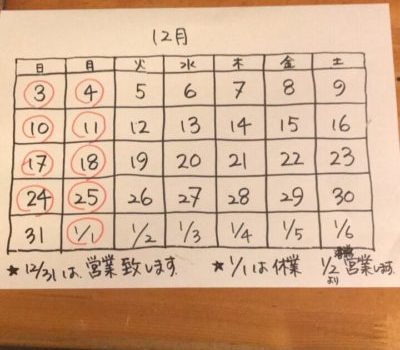 12月
日 月 火 水 木 金 土
3 4 5 6 7 8 9
10 11 12 13 14 15 16
17 18 19 20 21 22 23
24 25 26 27 28 29 30
31 1/1 1/2 1/3 1/4 1/5 1/6
★ 12/31 は、営業致します。 ★ 1/1 は 休業 1/2より 通常営業します。